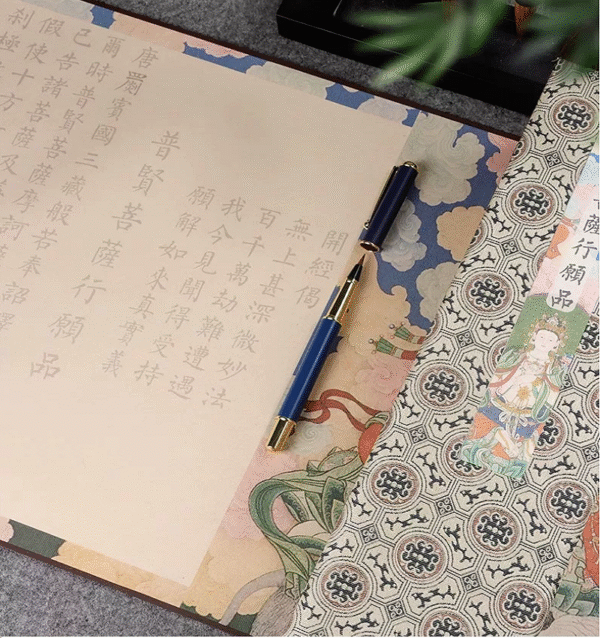 開經偈
無上甚深微妙法
百千萬劫難遭遇
我今見聞得受持
願解如來真實義
普賢菩薩行願品
唐罽賓國三藏般若奉詔譯
爾時普賢菩薩摩訶薩
已告諸菩薩及
假使十方
剎極
薩行願品